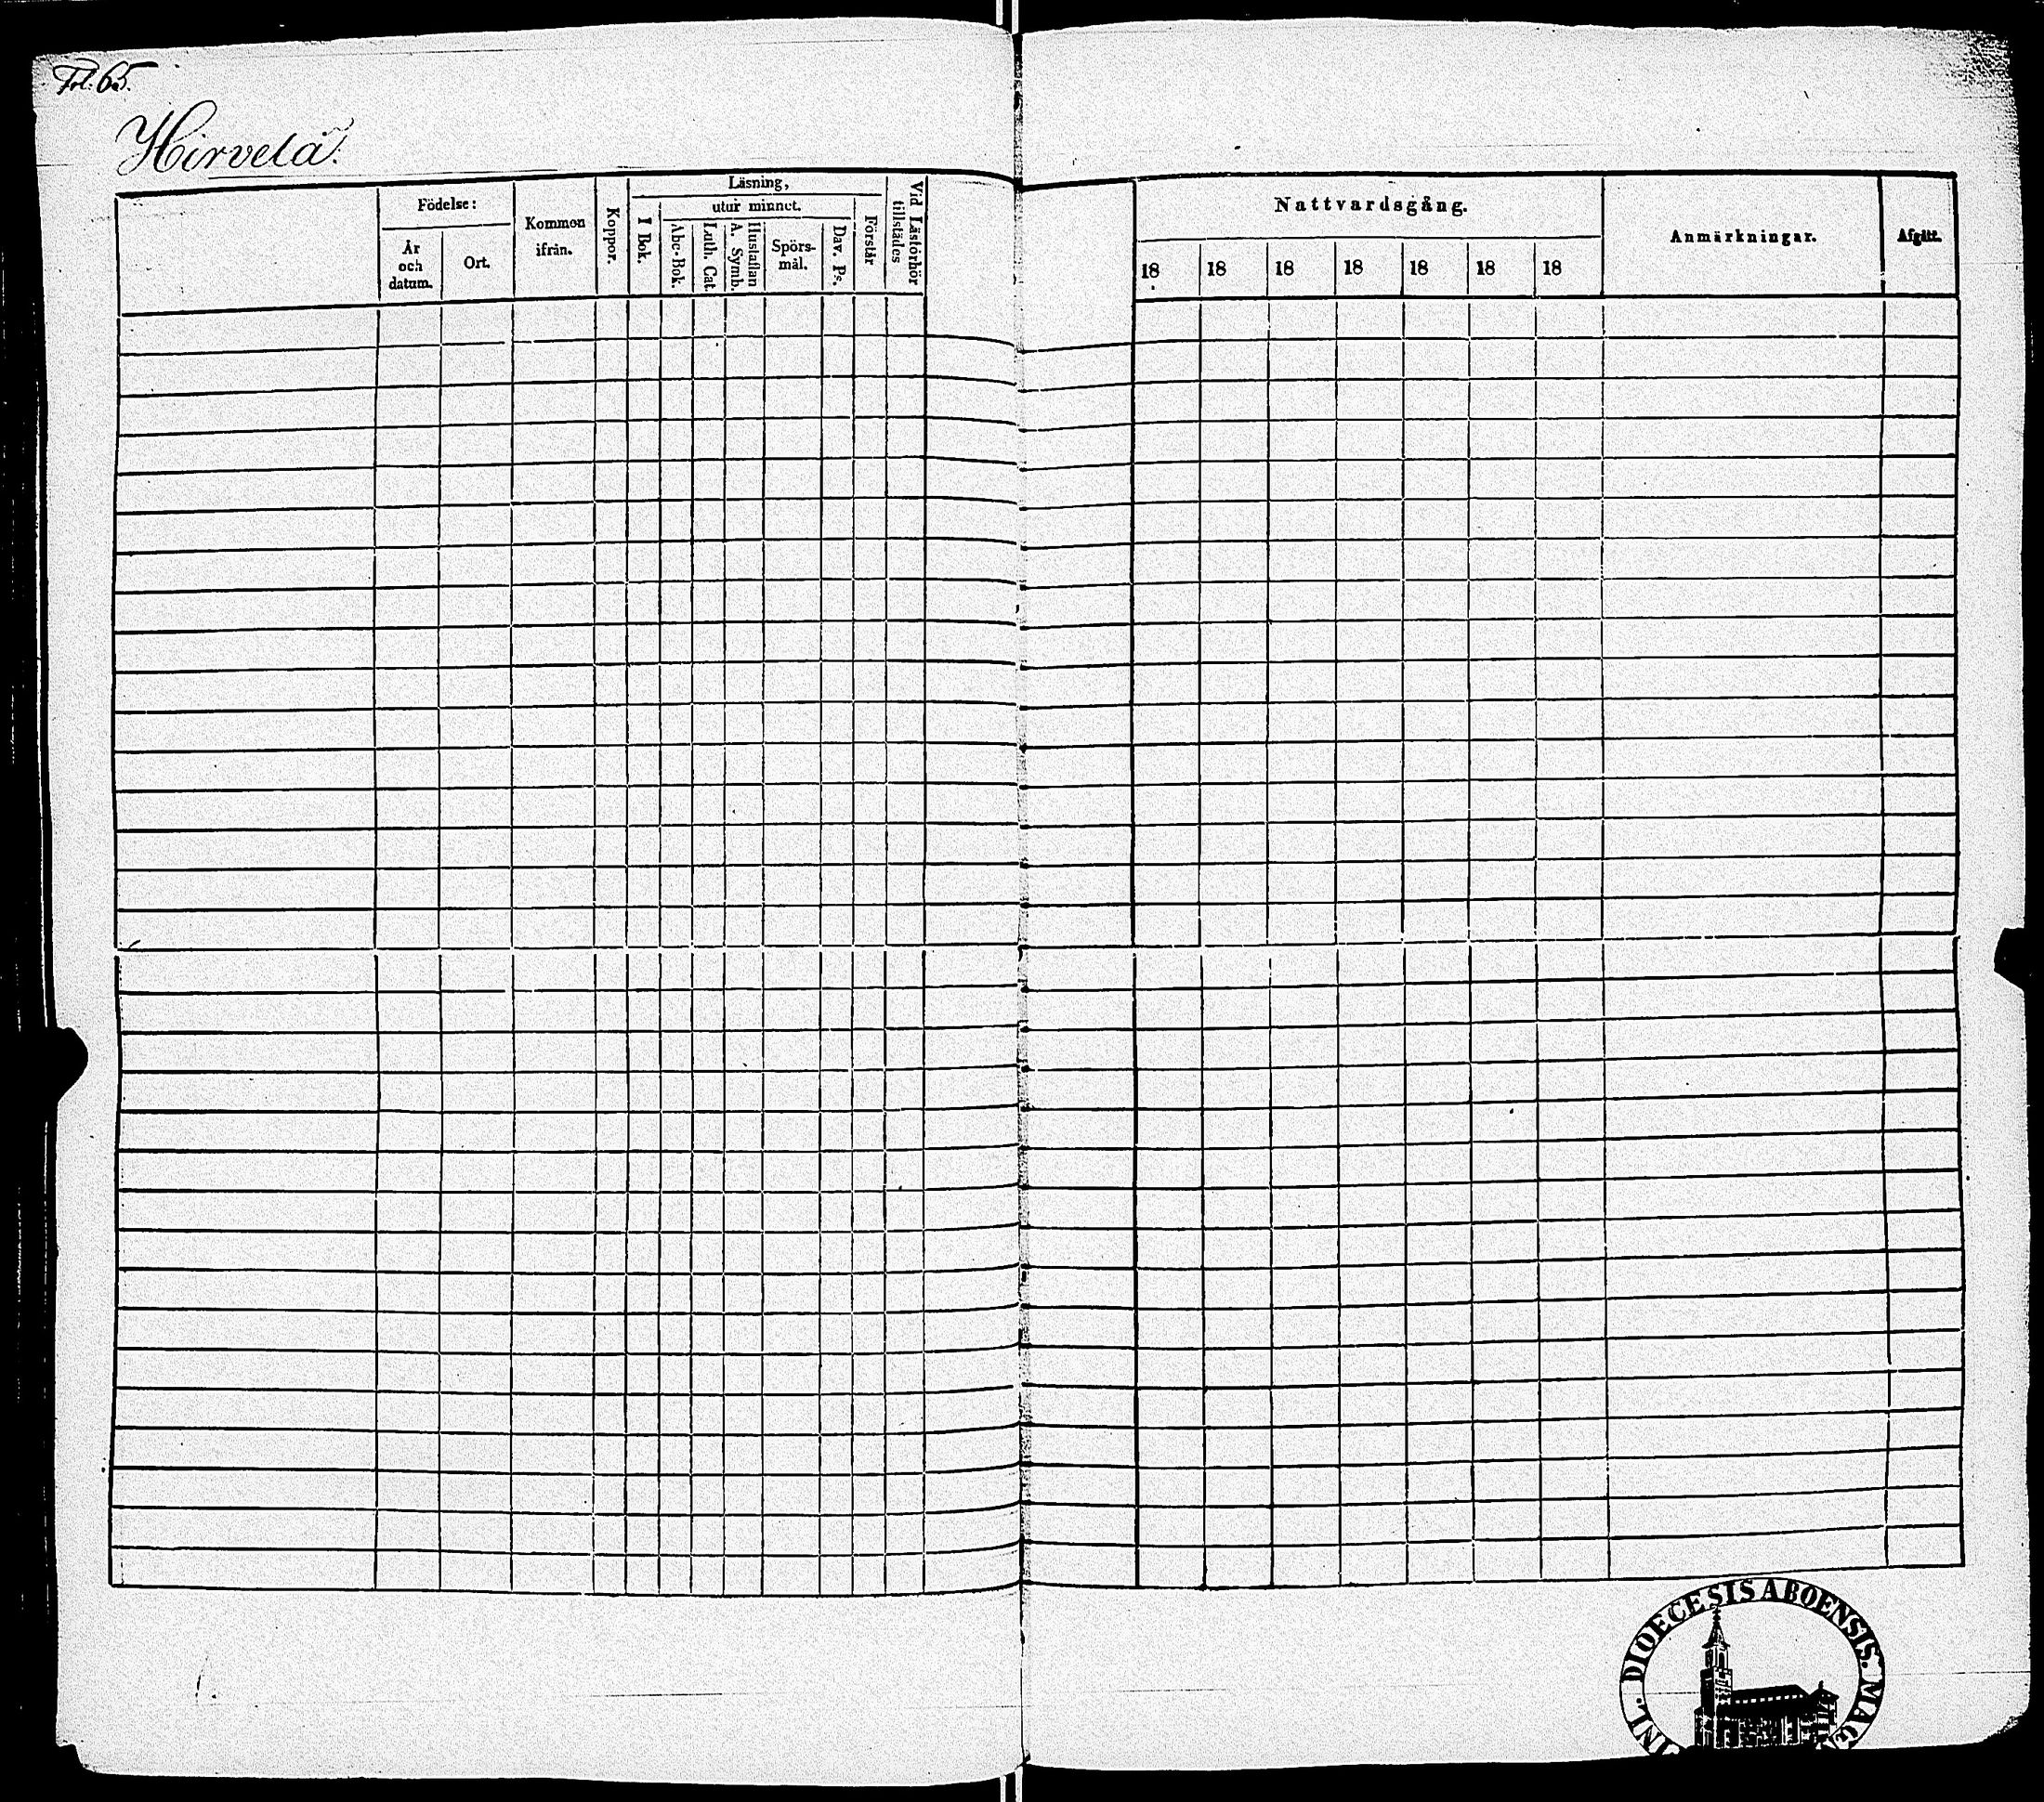 Fol. 65.
Hirvelä.
Födelse:
År
och
datum.
Ort.
Kommen
ifrån.
Koppor.
Läsning,
I Bok.
utur minnet.
Abc-Bok.
Luth. Cat.
Hustaflan
A. Symb.
Spörs-
mål.
Dav. Ps.
Förstår
Vid Läsförhör
tillstädes
Nattvardsgång.
18 18 18 18 18 18 18
Anmärkningar.
Afgått.
DIOECESIS ABOENSIS.